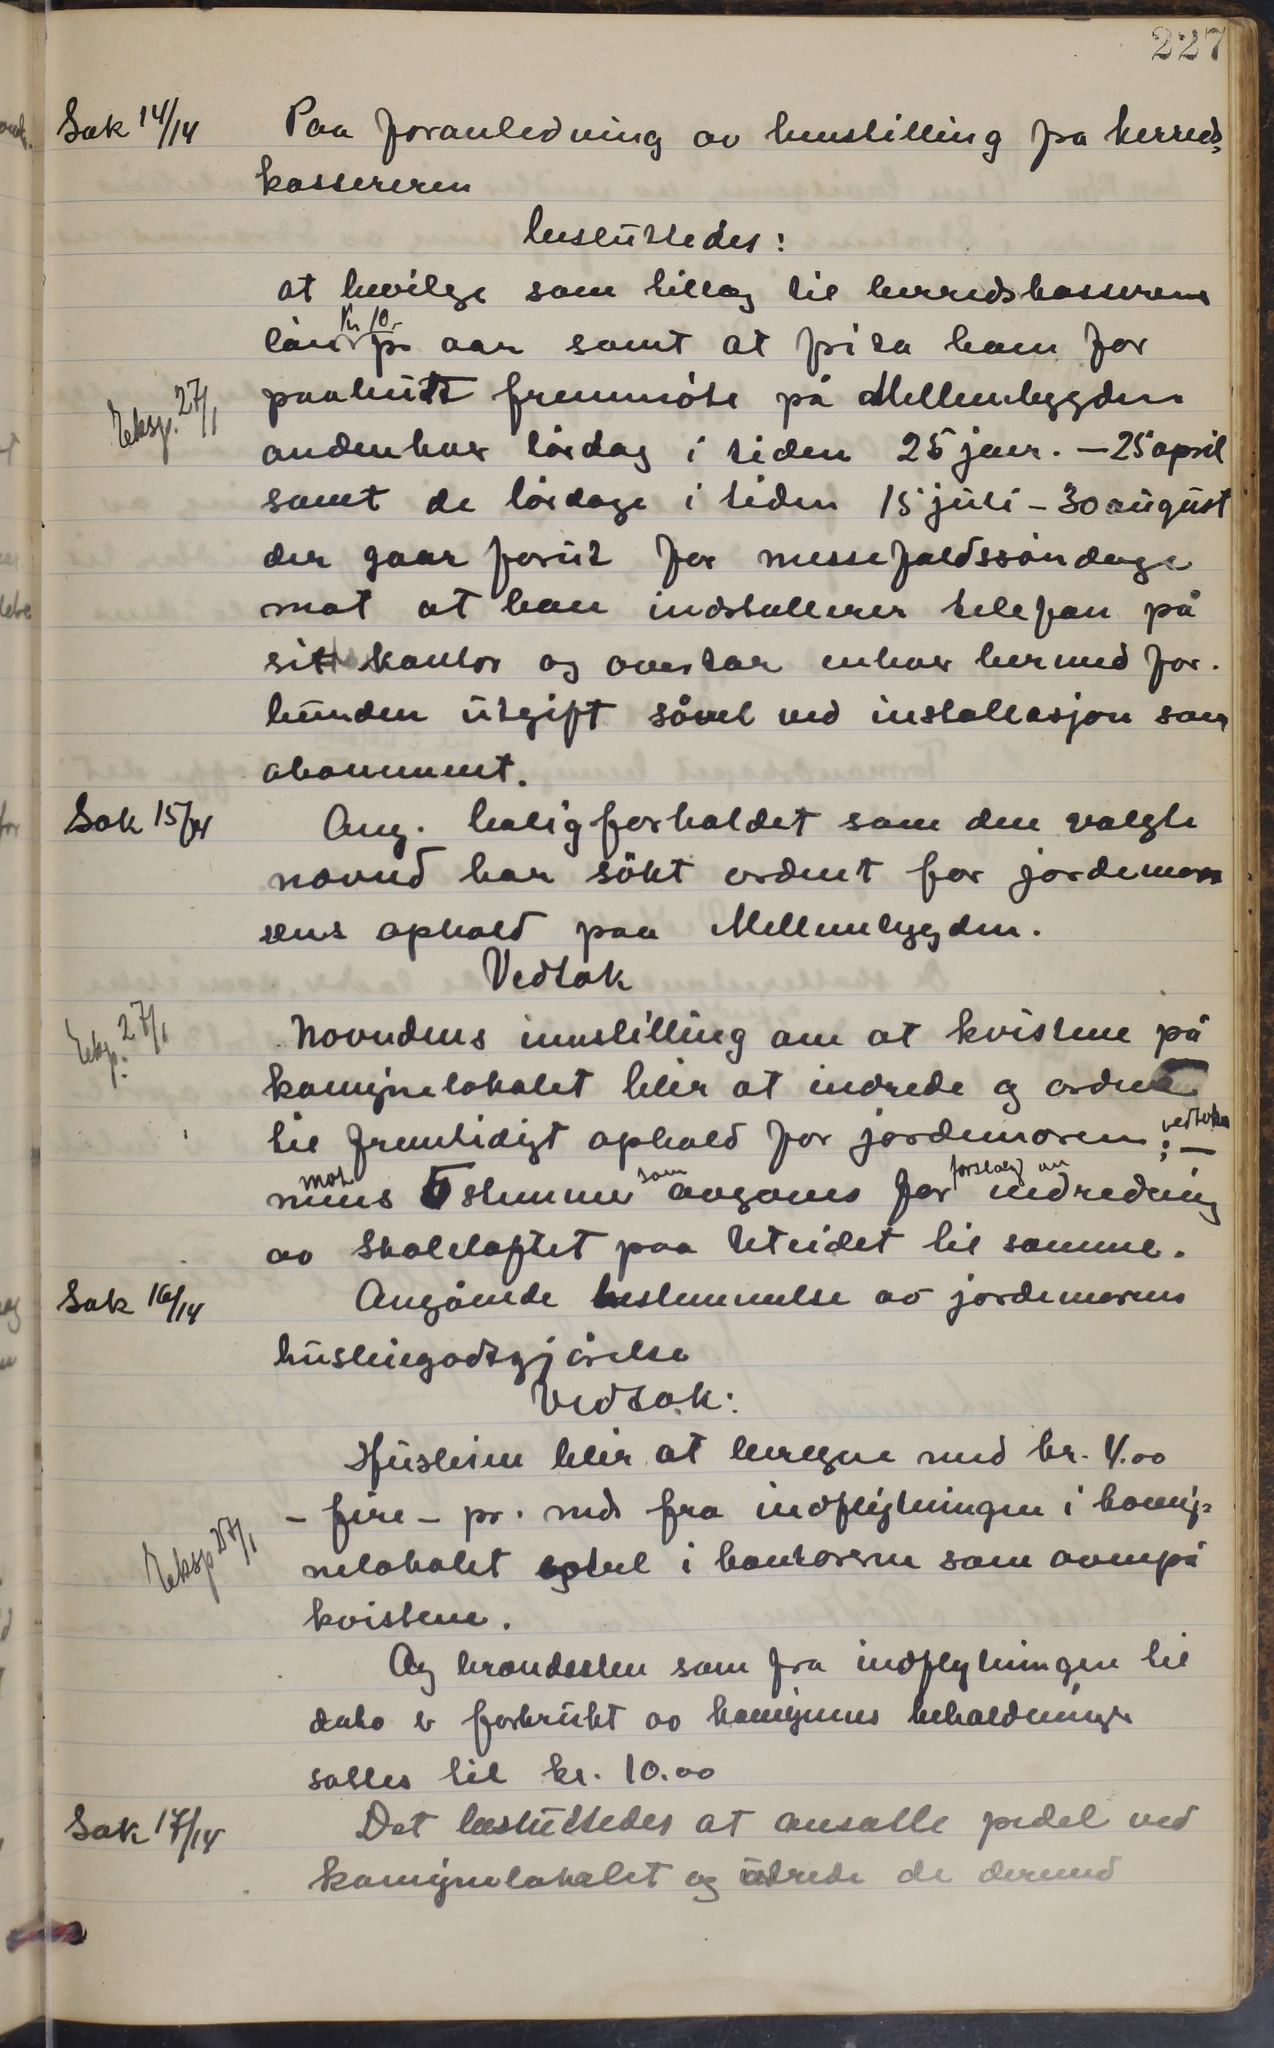 227
Sak 14/14 Paa foranledning av henstilling fra herreds-
kassereren
besluttedes:
at bevilge som tillæg til herredskasserens
lön kr 10.- pr aar samt at frita ham for
Eksp. 27/1 paabudt fremmöte på Mellembygden
andenhver lördag i tiden 25 januar. – 25 april
samt de lördage i tiden 15 juli – 30 august
der gaar forut for messefaldssöndage
mot at han indstallerer telefon på
sitt kontor og overtar enhver hermed for-
bunden utgift såvel ved installasjon som
abonnement.
Sak 15/14 Ang. boligforholdet som den valgte
nævnd har sökt ordnet for jordemor
sens ophold paa Mellembygden.
Vedtak
Eksp. 27/1 Nævndens innstilling om at kvistene på
komunelokalet blir at indrede og ordne
til fremtidigt ophold for jordemoren; vedtokes –
mot 5 stemmer som avgaves for forslag om indredning
av Skoleloftet paa Uteidet til samme.
Sak 16/14 Angående bestemmelse av jordemorens
husleiegodtgjörelse
Vedtak:
Husleien blir at beregne med kr. 4.00
– fire – pr. md fra indflytningen i komu-
Eksp 27/1 nelokalet såvel i kontorerne som ovenpå
kvistene.
Og brændselen som fra indflytningen til
dato er forbrukt av komunens beholdninger
sættes til kr. 10.00
Sak 17/14 Det besluttedes at ansætte pedel ved
komunelokalet og utrede de dermed